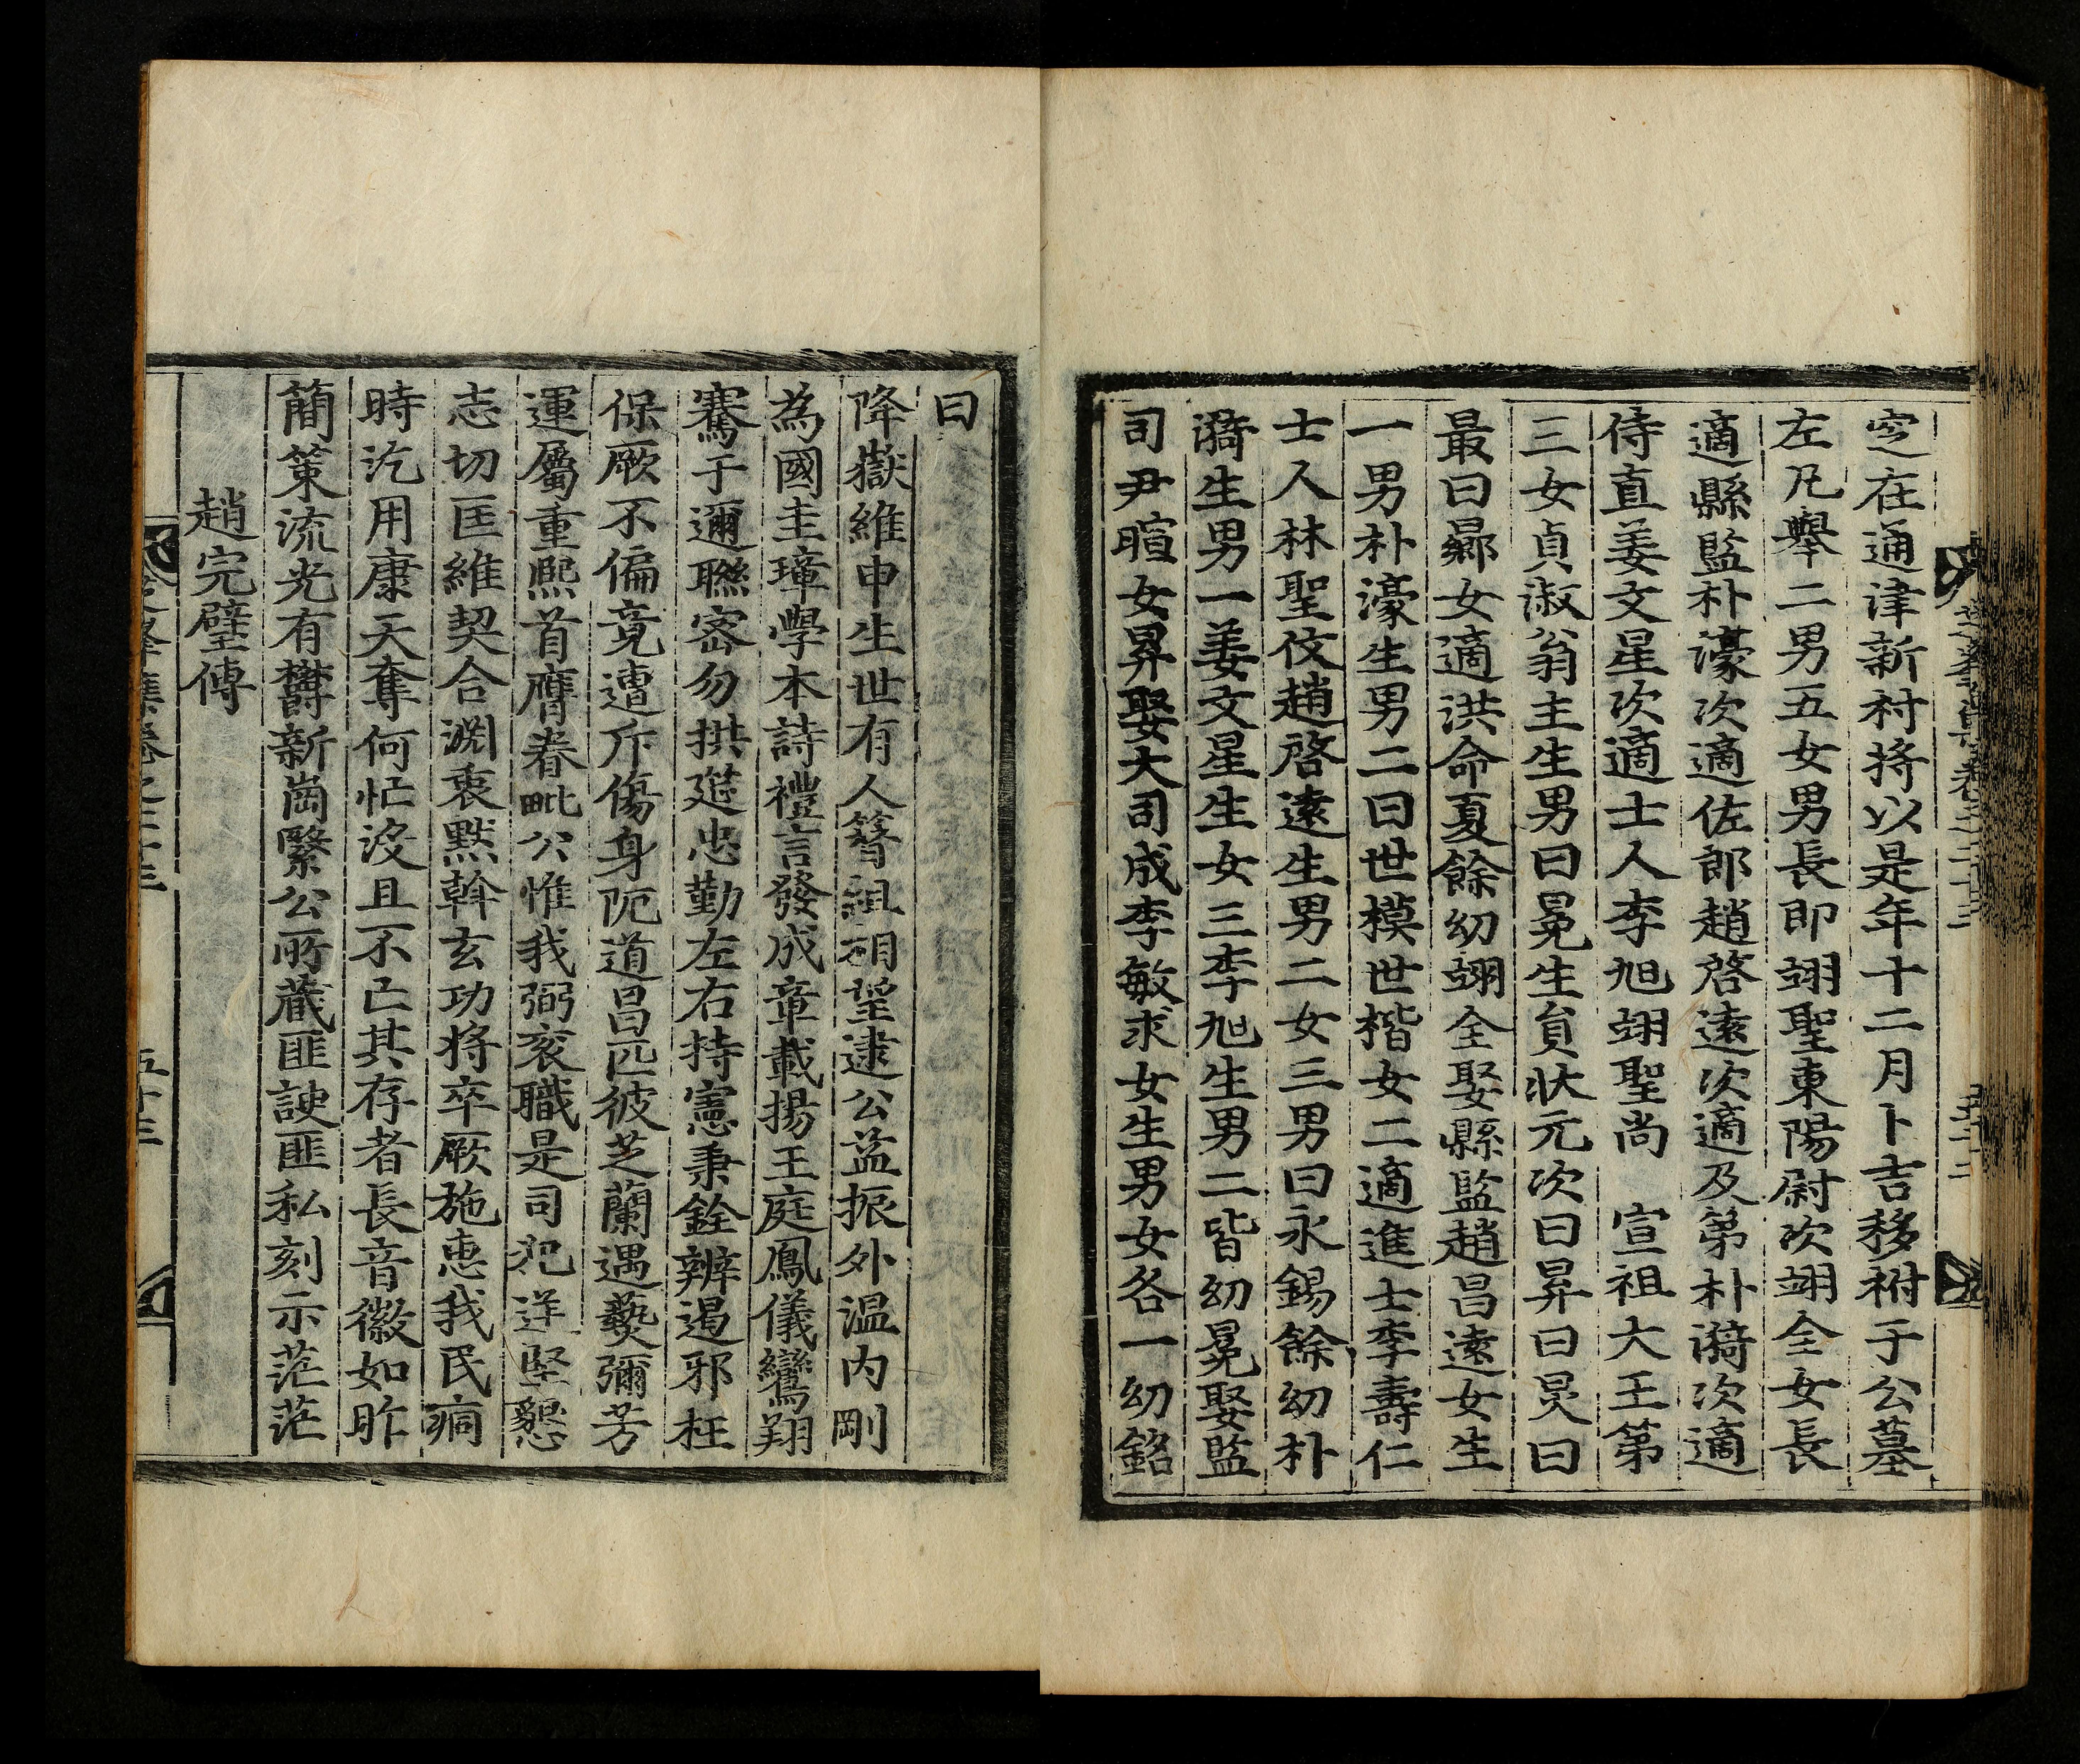 窆在通津新村將以是年十二月卜吉移祔于公墓
左凡擧二男五女男長即翊聖東陽尉次翊全女長
適縣監朴濠次適佐郎趙啓遠次適及第朴漪次適
侍直姜文星次適士人李旭翊聖尚 宣祖大王第
三女貞淑翁主生男曰冕生員狀元次曰昇曰炅曰
最曰䢿女適洪命夏餘幼翊全娶縣監趙昌遠女生
一男朴濠生男二曰世模世楷女二適進士李壽仁
士人林聖伋趙啓遠生男二女三男曰永錫餘幼朴
漪生男一姜文星生女三李旭生男二皆幼冕娶監
司尹暄女昇娶大司成李敏求女生男女各一幼銘
曰
降嶽維申生世有人簪組相望逮公益振外溫內剛
為國圭璋學本詩禮言發成章載揚王庭鳳儀鸞翔
騫于邇聯密勿拱莚忠勤左右持憲秉銓辨遏邪枉
保厥不偏竟遭斥傷身阨道昌匹彼芝蘭遇爇彌芳
運屬重熙首膺眷毗公惟我弼衮職是司犯逆堅懇
志切匡維契合淵衷默斡玄功將卒厥施惠我民痌
時汔用康天奪何忙沒且不亡其存者長音徽如昨
簡策流光有欝新崗繄公所藏匪諛匪私刻示茫茫
趙完璧傳
集卷之二十三
五十三